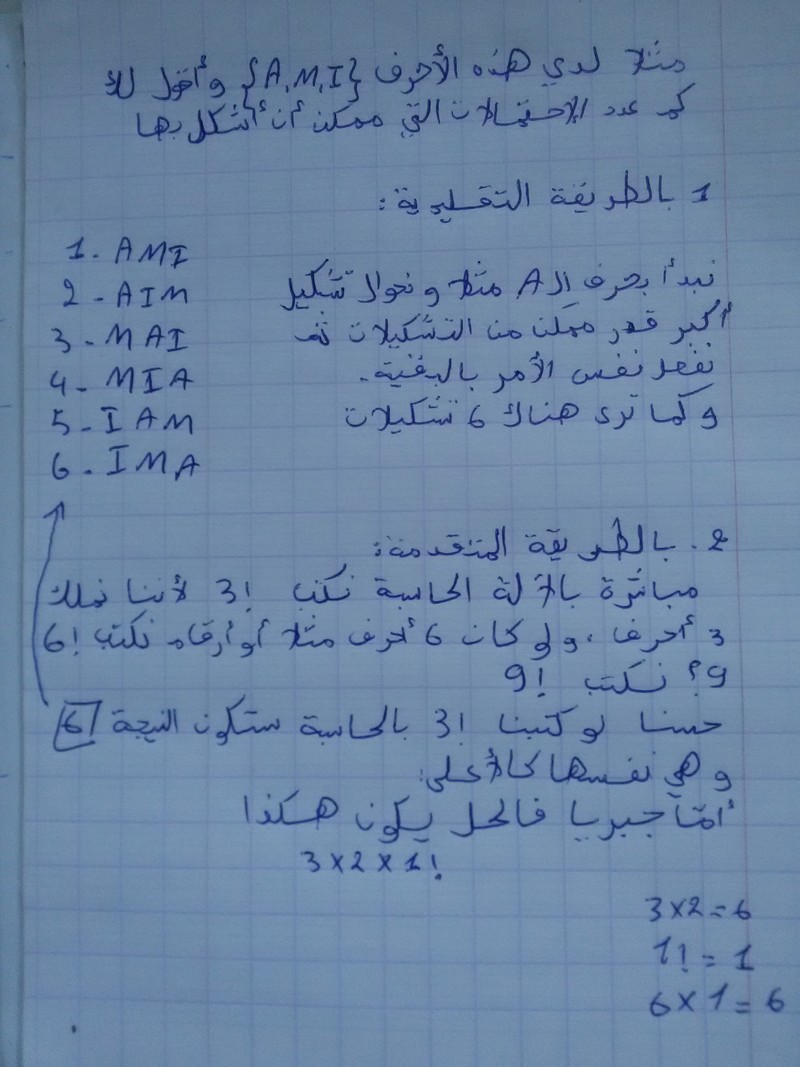 مثلا لدي هذه الأحرف {A,M,I} وأقول لك
كم عدد الإحتمالات التي ممكن أن أشكل بها
1 بالطريقة التقليدية:
1. AMI
2 - AIM
3 - MAI
4 - MIA
5 - IAM
6 - IMA
نبدأ بحرف الـ A مثلا و نحول تشكيل
أكبر قدر ممكن من التشكيلات ثم
نفعل نفس الأمر بالبقية.
وكما ترى هناك 6 تشكيلات
2. بالطريقة المتقدمة:
مباشرة بالآلة الحاسبة نكتب !3 لأننا نملك
3 أحرف، ولو كان 6 أحرف مثلا أو أرقام نكتب !6
9؟ نكتب !9
حسنا لو كتبنا !3 بالحاسبة ستكون النتيجة 6
وهي نفسها كالأعلى:
أمّا جبريا فالحل يكون هكذا
3 x 2 x 1!
3 x 2 = 6
1! = 1
6 x 1 = 6